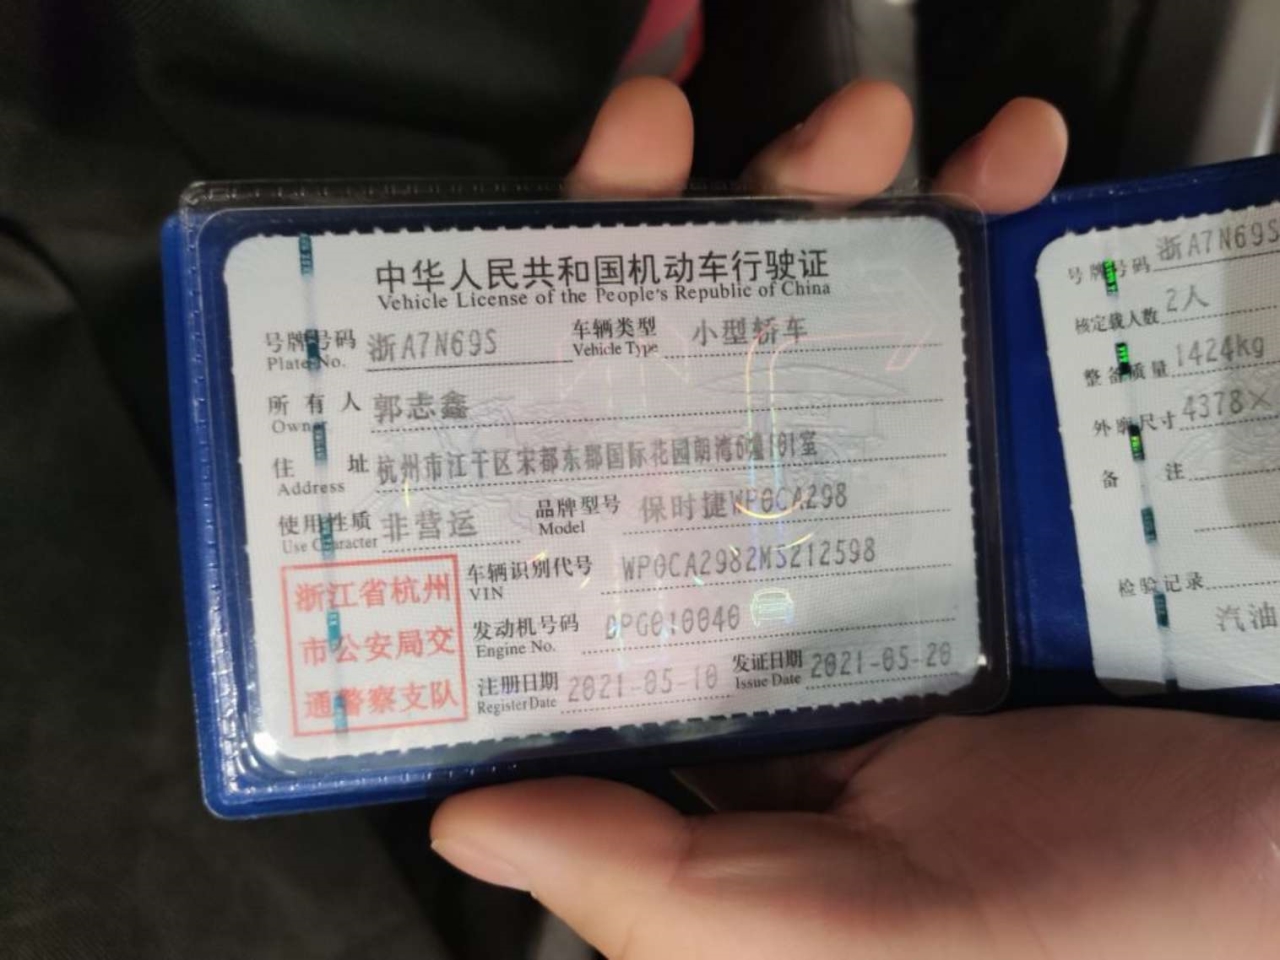 中华人民共和国机动车行驶证
Vehicle License of the People's Republic of China
号牌号码 浙A7N69S 车辆类型 小型轿车
Plate No. Vehicle Type
所有人 郭志鑫
Owner
住址 杭州市江干区宋都东郡国际花园朗湾6幢101室
Address
使用性质 非营运 品牌型号 保时捷WP0CA298
Use Character Model
车辆识别代号 WP0CA2982MS212598
VIN
发动机号码 DPG010040
Engine No.
注册日期 2021-05-10 发证日期 2021-05-20
Register Date Issue Date
浙江省杭州
市公安局交
通警察支队
号牌号码 浙A7N69S
核定载人数 2人
整备质量 1424kg
外廓尺寸 4378×
备注
检验记录
汽油